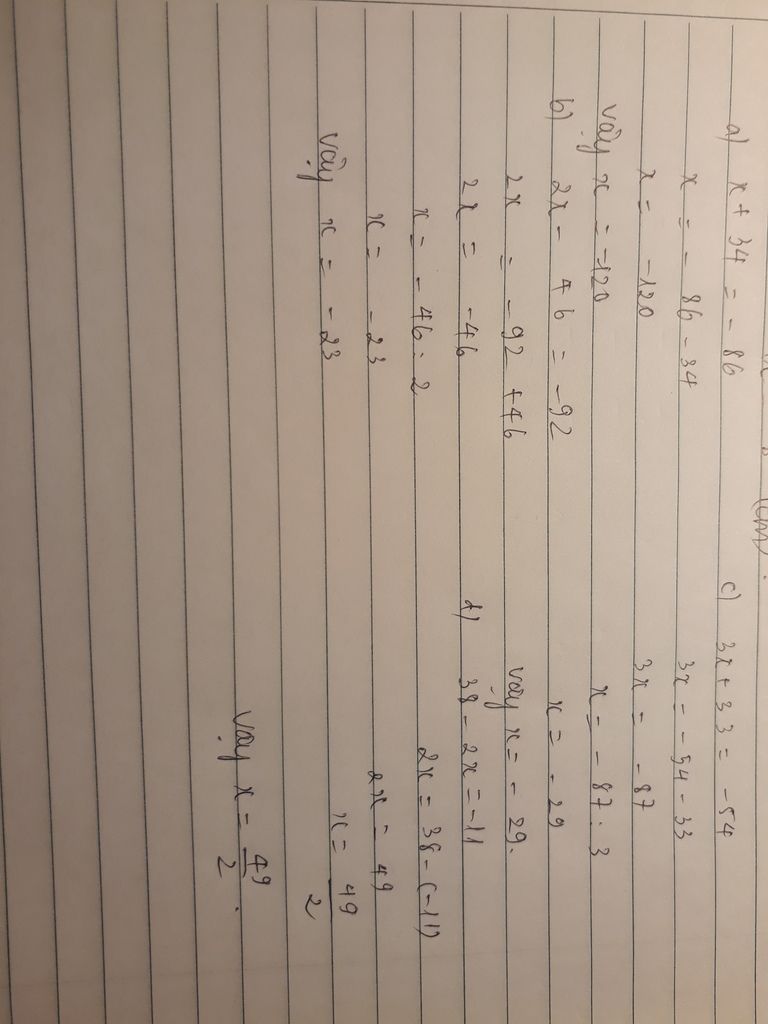 (cm).
a) x + 34 = - 86
x = - 86 - 34
x = - 120
vậy x = -120
b) 2x - 46 = -92
2x = - 92 + 46
2x = - 46
x = - 46 : 2
x = - 23
vậy x = - 23
c) 3x + 33 = - 54
3x = - 54 - 33
3x = - 87
x = - 87 : 3
x = - 29
vậy x = - 29.
d) 38 - 2x = -11
2x = 38 - (-11)
2x = 49
x = 49/2
vậy x = 49/2.